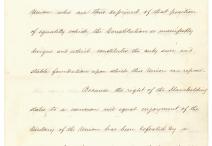 Union who are thus deprived of that position
of equality which the Constitution so manifestly
designs and which constitutes the only sure and
stable foundation upon which this Union can repose
Because the right of the Slaveholding
states to a common and equal enjoyment of the
territory of the Union has been defeated by a